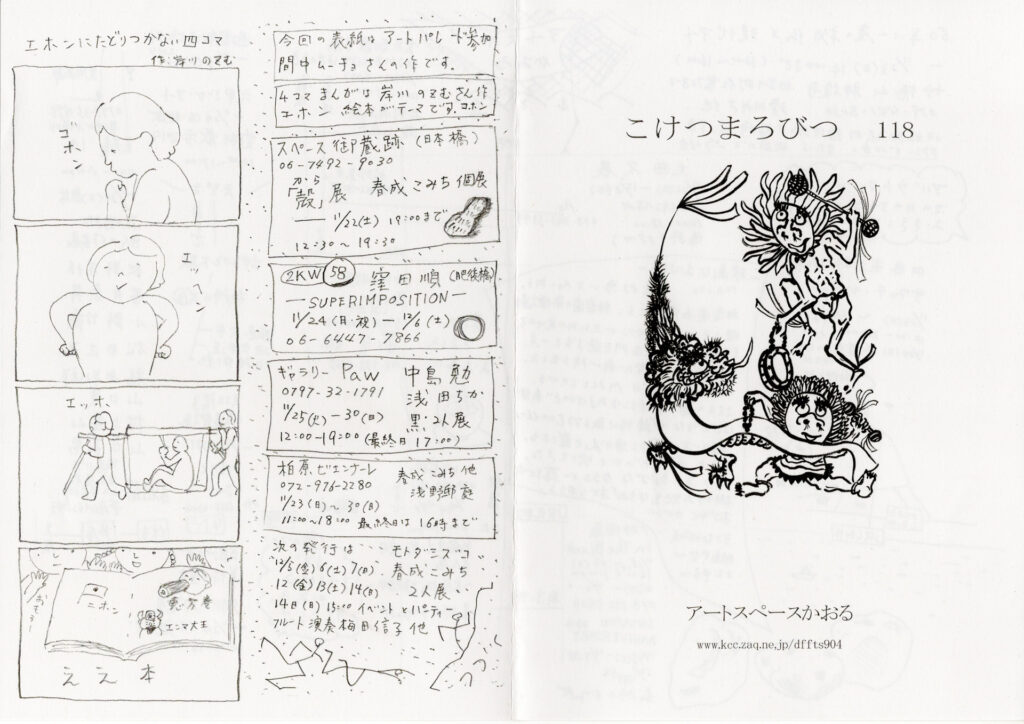 エホンにたどりつかない四コマ
作:岸川のぞむ
ゴホン
エッ
エッホ
ニホン
恵方巻
エンマ大王
おもろー
ええ本
今回の表紙はアートパレード参加
間中ムーチョさんの作です。
4コマまんがは岸川のぞむさん作
エホン 絵本がテーマです。ヨホン
スペース御蔵跡(日本橋)
06-7492-9030
から
「殻」展 春成こみち個展
11/22(土) 19:00まで
12:30~19:30
2KW 58 窪田順(肥後橋)
―SUPERIMPOSITION―
11/24(月・祝)―12/6(土)
06-6447-7866
ギャラリー Paw 中島勉
0797-32-1791 浅田ちか
11/25(火)―30(日) 黒、2人展
12:00―19:00(最終日17:00)
柏原ビエンナーレ 春成こみち他
072-976-2280 浅野郁庭
11/23(日)~30(日)
11:00~18:00 最終日は16時まで
次の発行は… モトダニズコ
12/5(金)6(土)7(日) 春成こみち
12(金)13(土)14(日) 2人展
14日(日)15:00イベントとパーティー
フルート演奏梅田信子他
こけつまろびつ 118
アートスペースかおる
www.kcc.zaq.ne.jp/dffts904